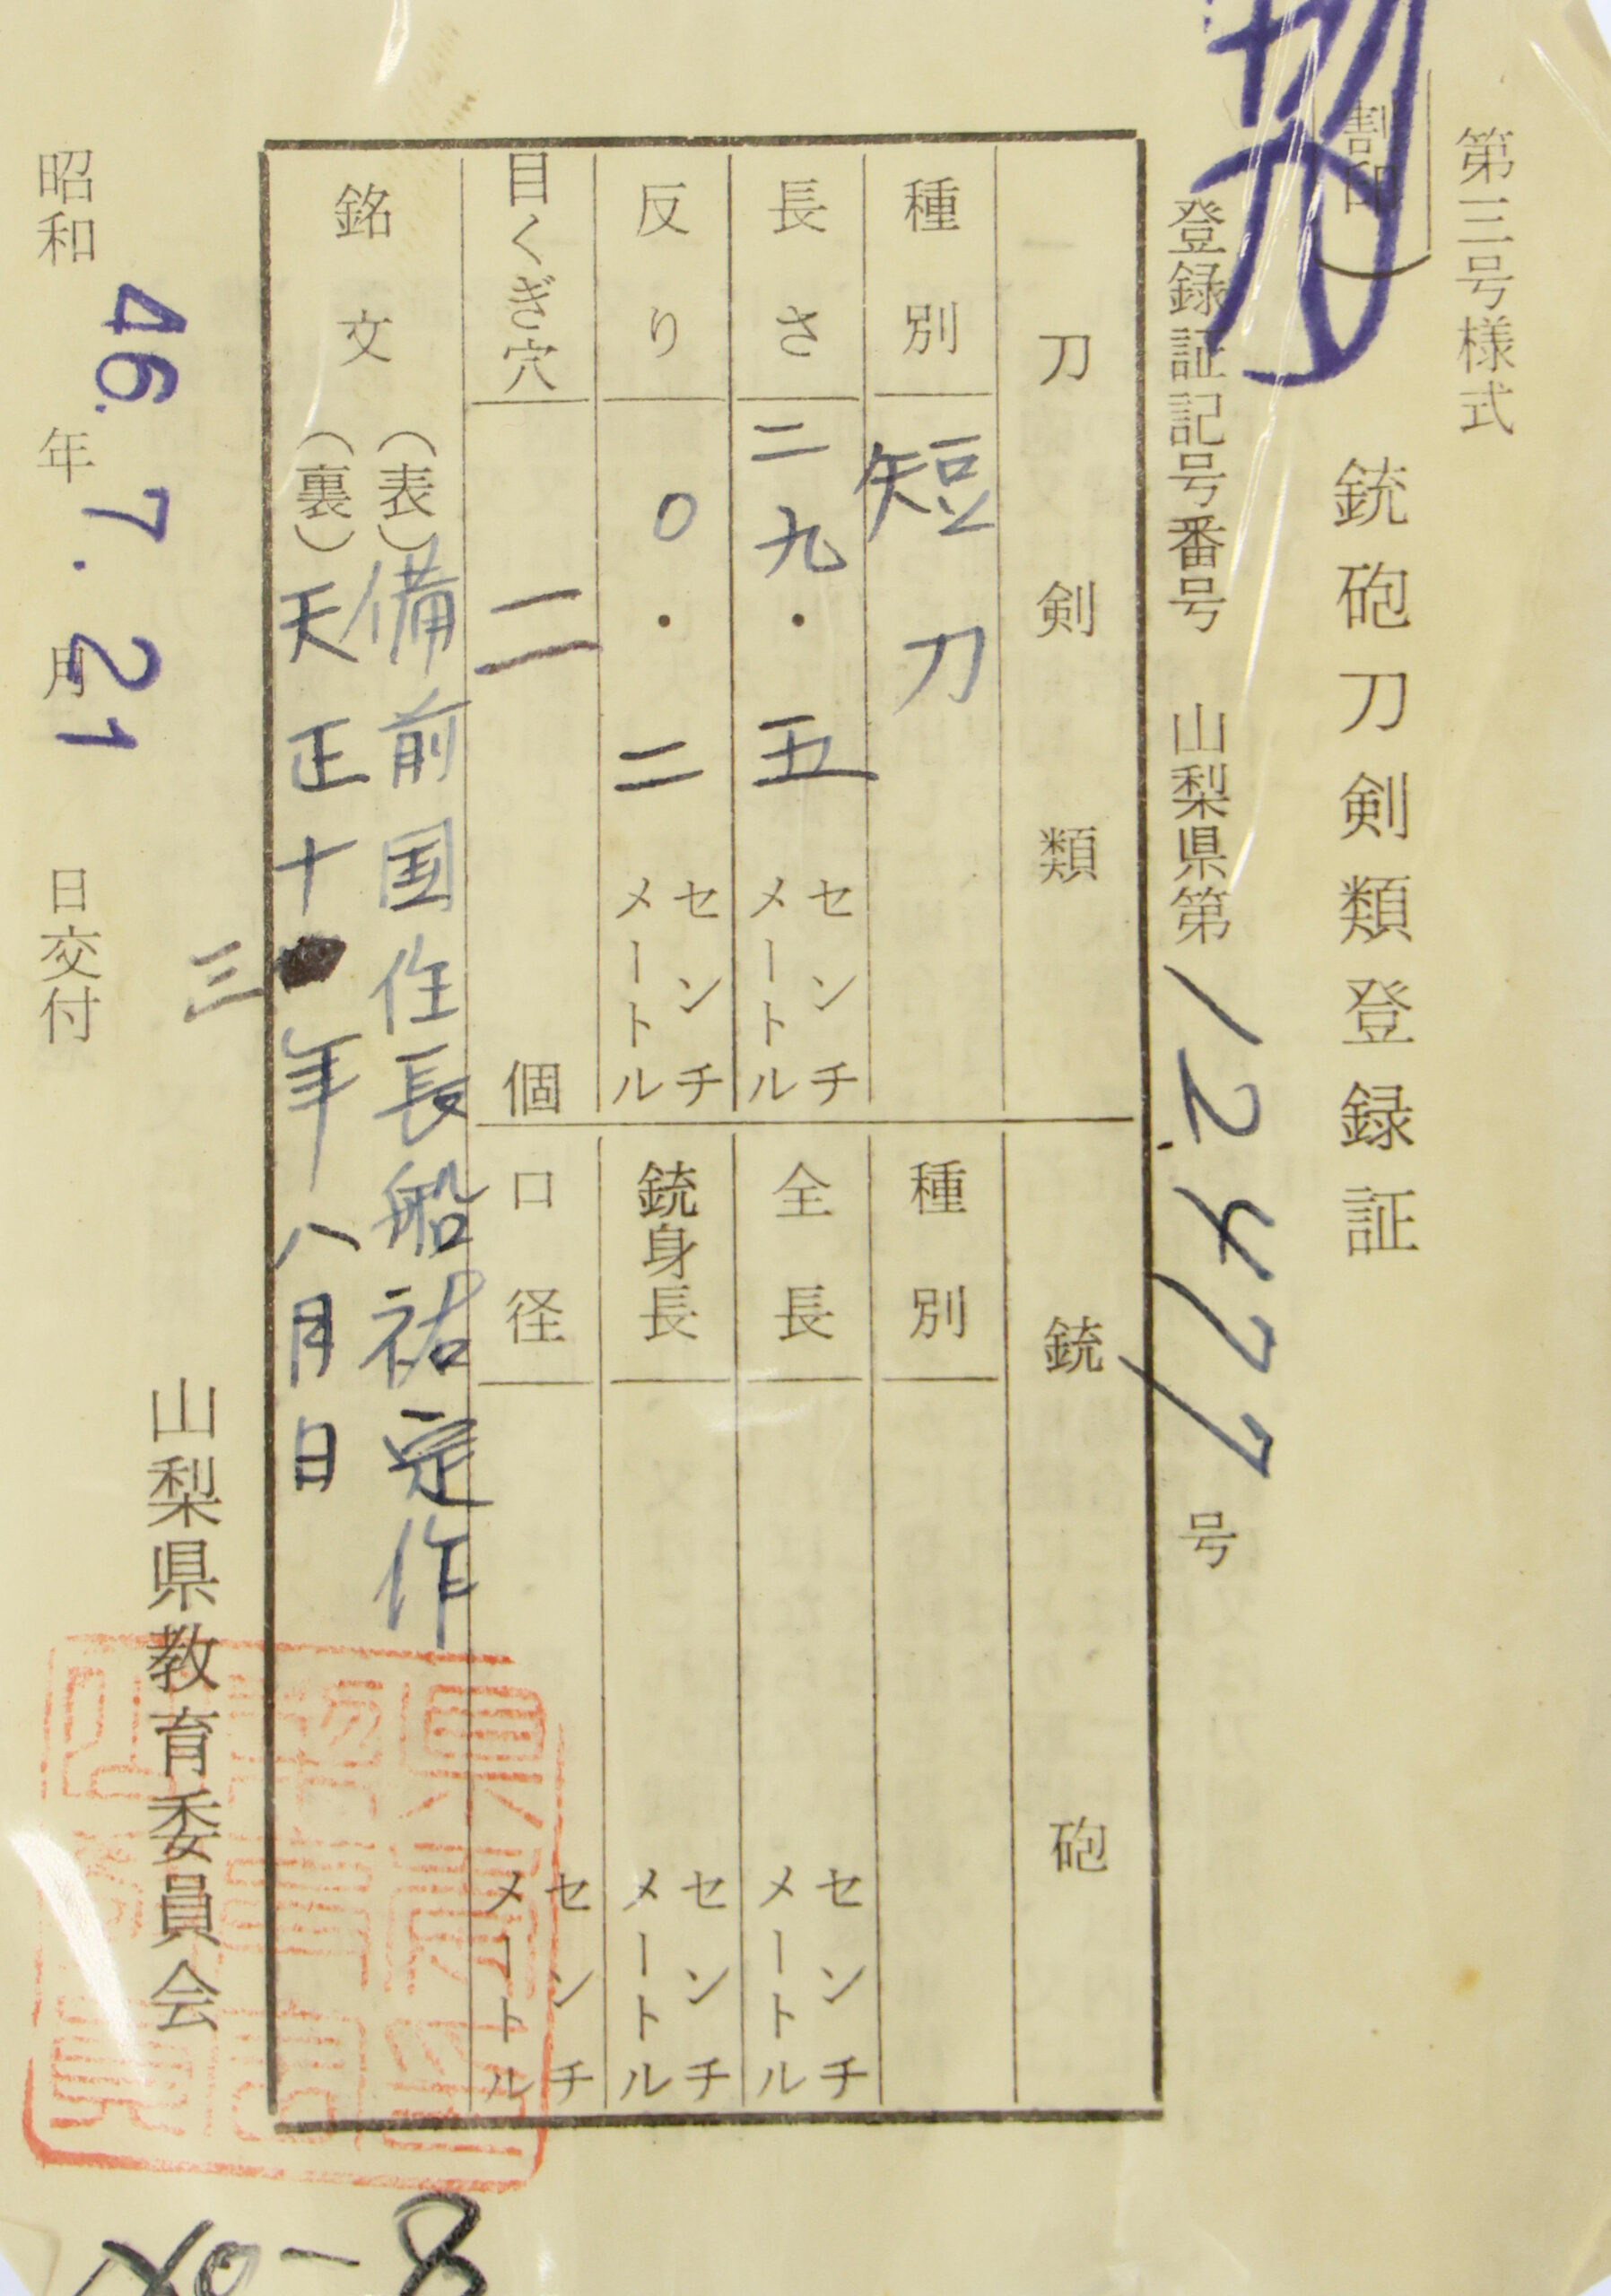 第三号様式
割印
銃砲刀剣類登録証
登録証記号番号 山梨県第12477号
刀剣類
種別 短刀
長さ 二九・五 センチメートル
反り 〇・二 センチメートル
目くぎ穴 二 個
銃砲
種別
全長 センチメートル
銃身長 センチメートル
口径 センチメートル
銘文
(表)備前国住長船祐定作
(裏)天正十三年八月日
昭和46年7月21日交付
山梨県教育委員会